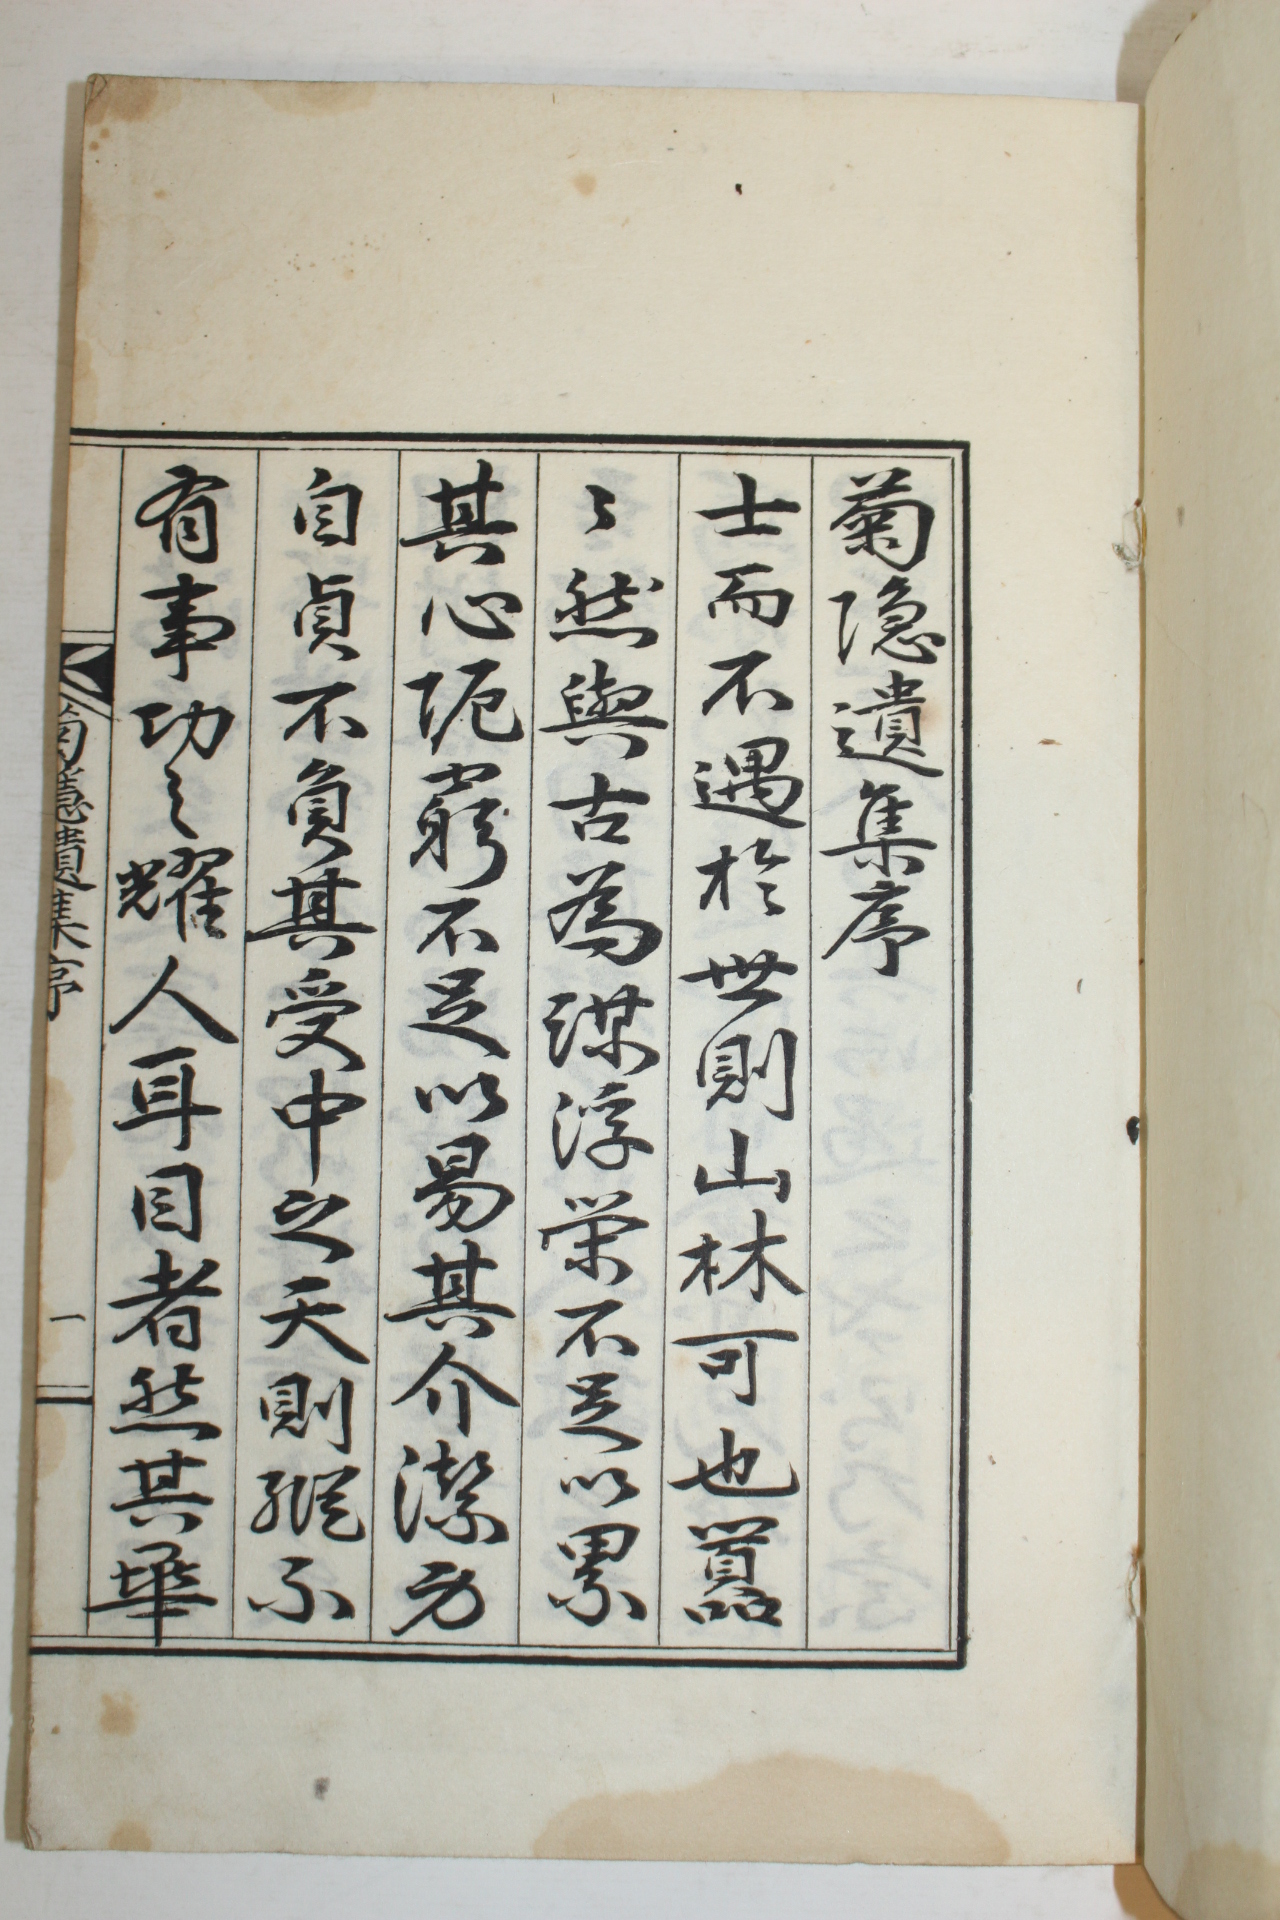 菊隐遺集序
士而不遇於世則山林可也囂
〻然與古為謀浮荣不足以累
其心阨窮不足以易其介潔方
自貞不負其受中之天則縱不
有事功之耀人耳目者然其畢
菊隱遺集序
一